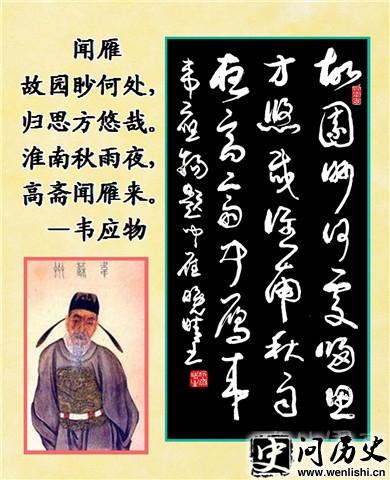 闻雁
故园眇何处,
归思方悠哉。
淮南秋雨夜,
高斋闻雁来。
—韦应物
故園眇何處歸思
方悠哉淮南秋雨
夜高斋闻雁来
韦應物题闻雁
韋蘇州
史问历史
www.wenlishi.cn